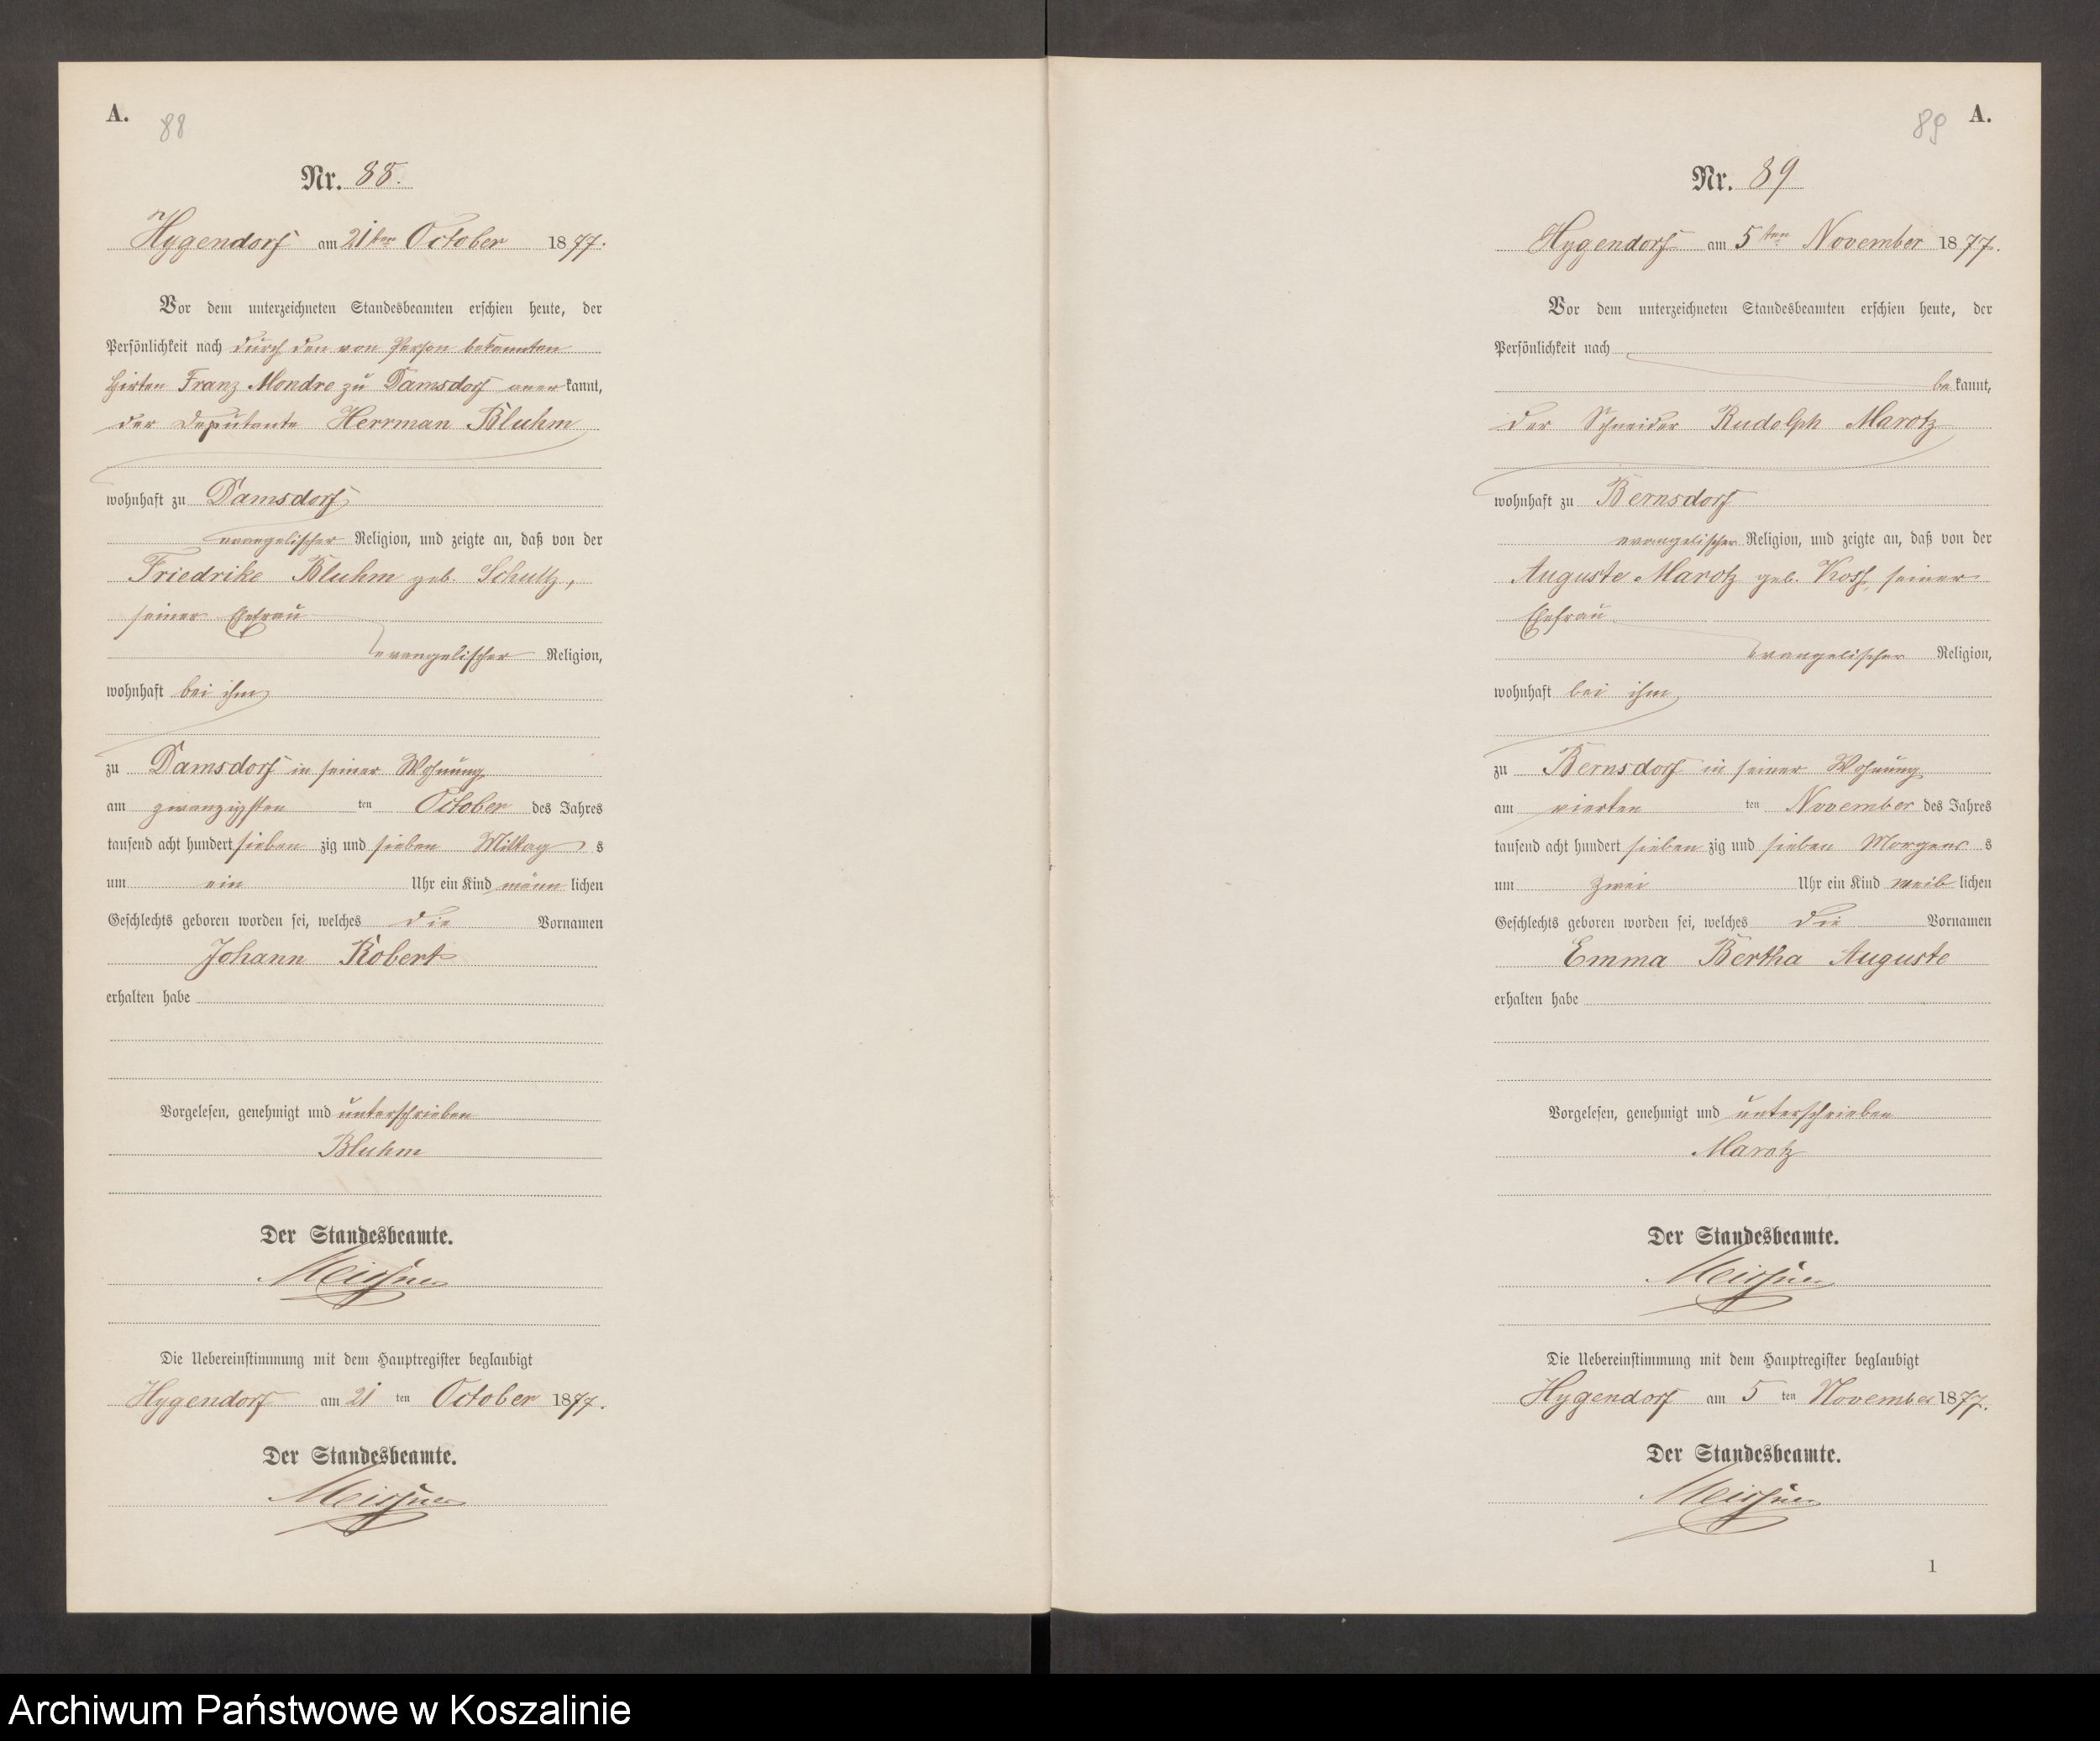 A.
88
Nr. 88.
Hygendorf am 21ten October 1877.
Vor dem unterzeichneten Standesbeamten erschien heute, der
Persönlichkeit nach durch den von Person bekannten
Hirten Franz Mondro zu Damsdorf aner kannt,
der Deputante Herrman Bluhm
wohnhaft zu Damsdorf
evangelischer Religion, und zeigte an, daß von der
Friedrike Bluhm geb. Schultz,
seiner Ehefrau
evangelischer Religion,
wohnhaft bei ihm
zu Damsdorf in seiner Wohnung
am zwanzigsten ten October des Jahres
tausend acht hundert sieben zig und sieben Mittag s
um ein Uhr ein Kind männ lichen
Geschlechts geboren worden sei, welches die Vornamen
Johann Robert
erhalten habe
Vorgelesen, genehmigt und unterschrieben
Bluhm
Der Standesbeamte.
Die Uebereinstimmung mit dem Hauptregister beglaubigt
Hygendorf am 21 ten October 1877.
Der Standesbeamte.
89 A.
Nr. 89
Hygendorf am 5ten November 1877.
Vor dem unterzeichneten Standesbeamten erschien heute, der
Persönlichkeit nach
be kannt,
der Schneider Rudolph Marotz
wohnhaft zu Bernsdorf
evangelischer Religion, und zeigte an, daß von der
Auguste Marotz geb. seiner
Ehefrau
evangelischer Religion,
wohnhaft bei ihm
zu Bernsdorf in seiner Wohnung
am vierten ten November des Jahres
tausend acht hundert sieben zig und sieben Morgens s
um zwei Uhr ein Kind weib lichen
Geschlechts geboren worden sei, welches die Vornamen
Emma Bertha Auguste
erhalten habe
Vorgelesen, genehmigt und unterschrieben
Marotz
Der Standesbeamte.
Die Uebereinstimmung mit dem Hauptregister beglaubigt
Hygendorf am 5 ten November 1877.
Der Standesbeamte.
1
Archiwum Państwowe w Koszalinie